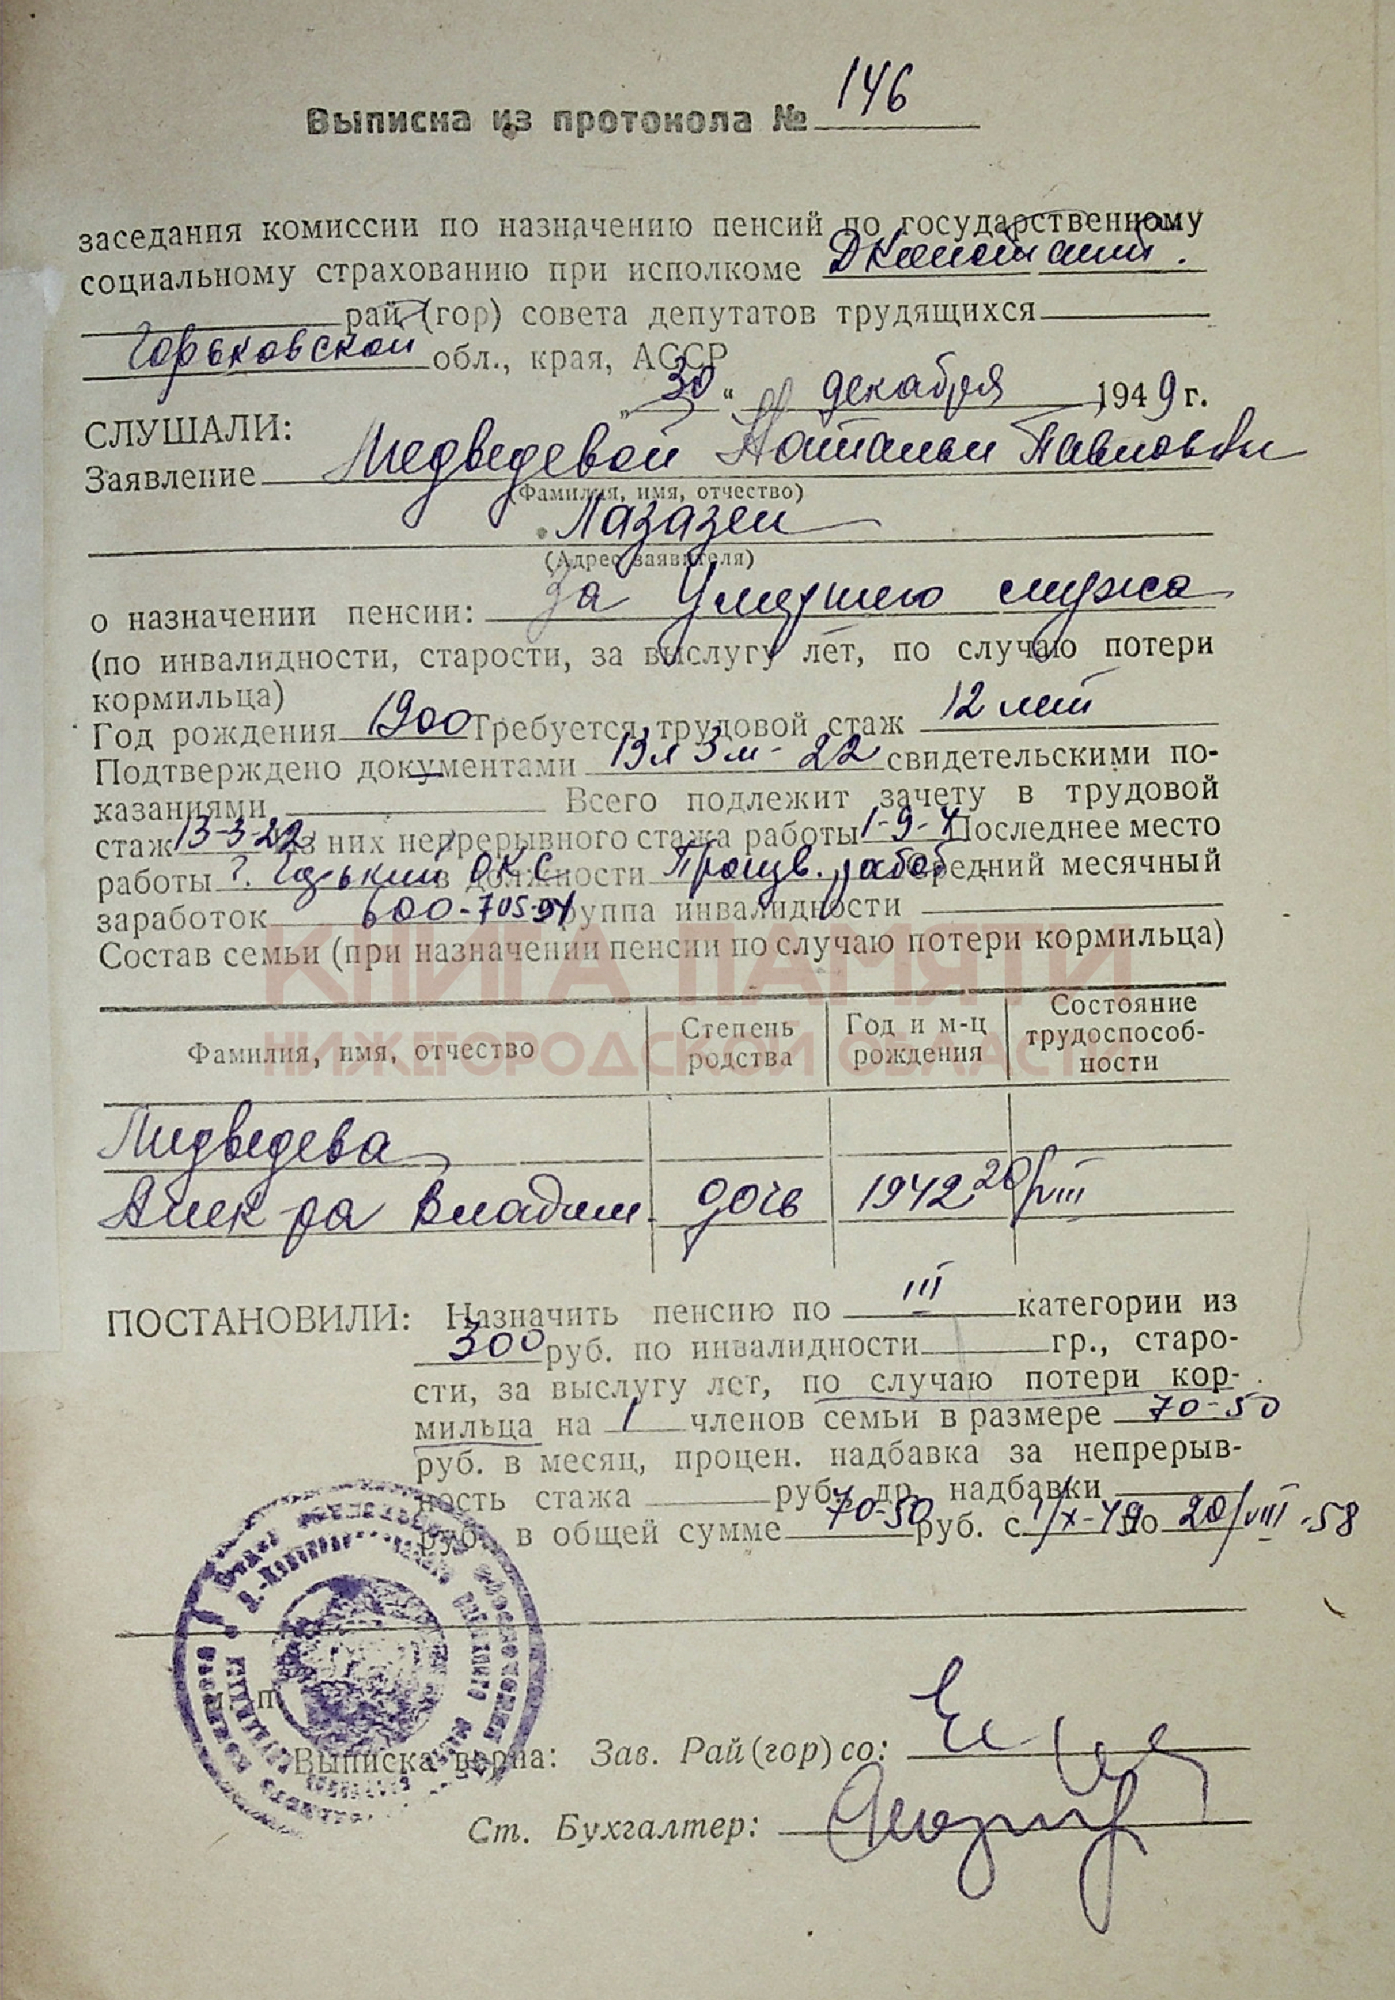 Выписка из протокола № 146
заседания комиссии по назначению пенсий по государственному
социальному страхованию при исполкоме
рай (гор) совета депутатов трудящихся
Горьковской обл., края, АССР
„30“ декабря 1949 г.
СЛУШАЛИ:
Заявление Медведевой Натальи Павловны
(Фамилия, имя, отчество)
Лазазеи
(Адрес заявителя)
о назначении пенсии: За Умершего мужа
(по инвалидности, старости, за выслугу лет, по случаю потери
кормильца)
Год рождения 1900 Требуется трудовой стаж 12 лет
Подтверждено документами 13 л 3 м - 22 свидетельскими по-
казаниями Всего подлежит зачету в трудовой
стаж 13-3-22 Из них непрерывного стажа работы 1-9-4 Последнее место
работы г. Горький ОКС в должности Произв. работ Средний месячный
заработок 600-705-94 Группа инвалидности
Состав семьи (при назначении пенсии по случаю потери кормильца)
КНИГА ПАМЯТИ
НИЖЕГОРОДСКОЙ ОБЛАСТИ
Фамилия, имя, отчество Степень родства Год и м-ц рождения Состояние трудоспособ-ности
Медведева
Алек-ра Владим. дочь 1942 20/VIII
ПОСТАНОВИЛИ: Назначить пенсию по III категории из
300 руб. по инвалидности гр., старо-
сти, за выслугу лет, по случаю потери кор-
мильца на 1 членов семьи в размере 70-50
руб. в месяц, процен. надбавка за непрерыв-
ность стажа руб., др. надбавки
руб. в общей сумме 70-50 руб. с 1/X-49 по 20/VIII-58
м. п.
Выписка верна: Зав. Рай(гор)со:
Ст. Бухгалтер: